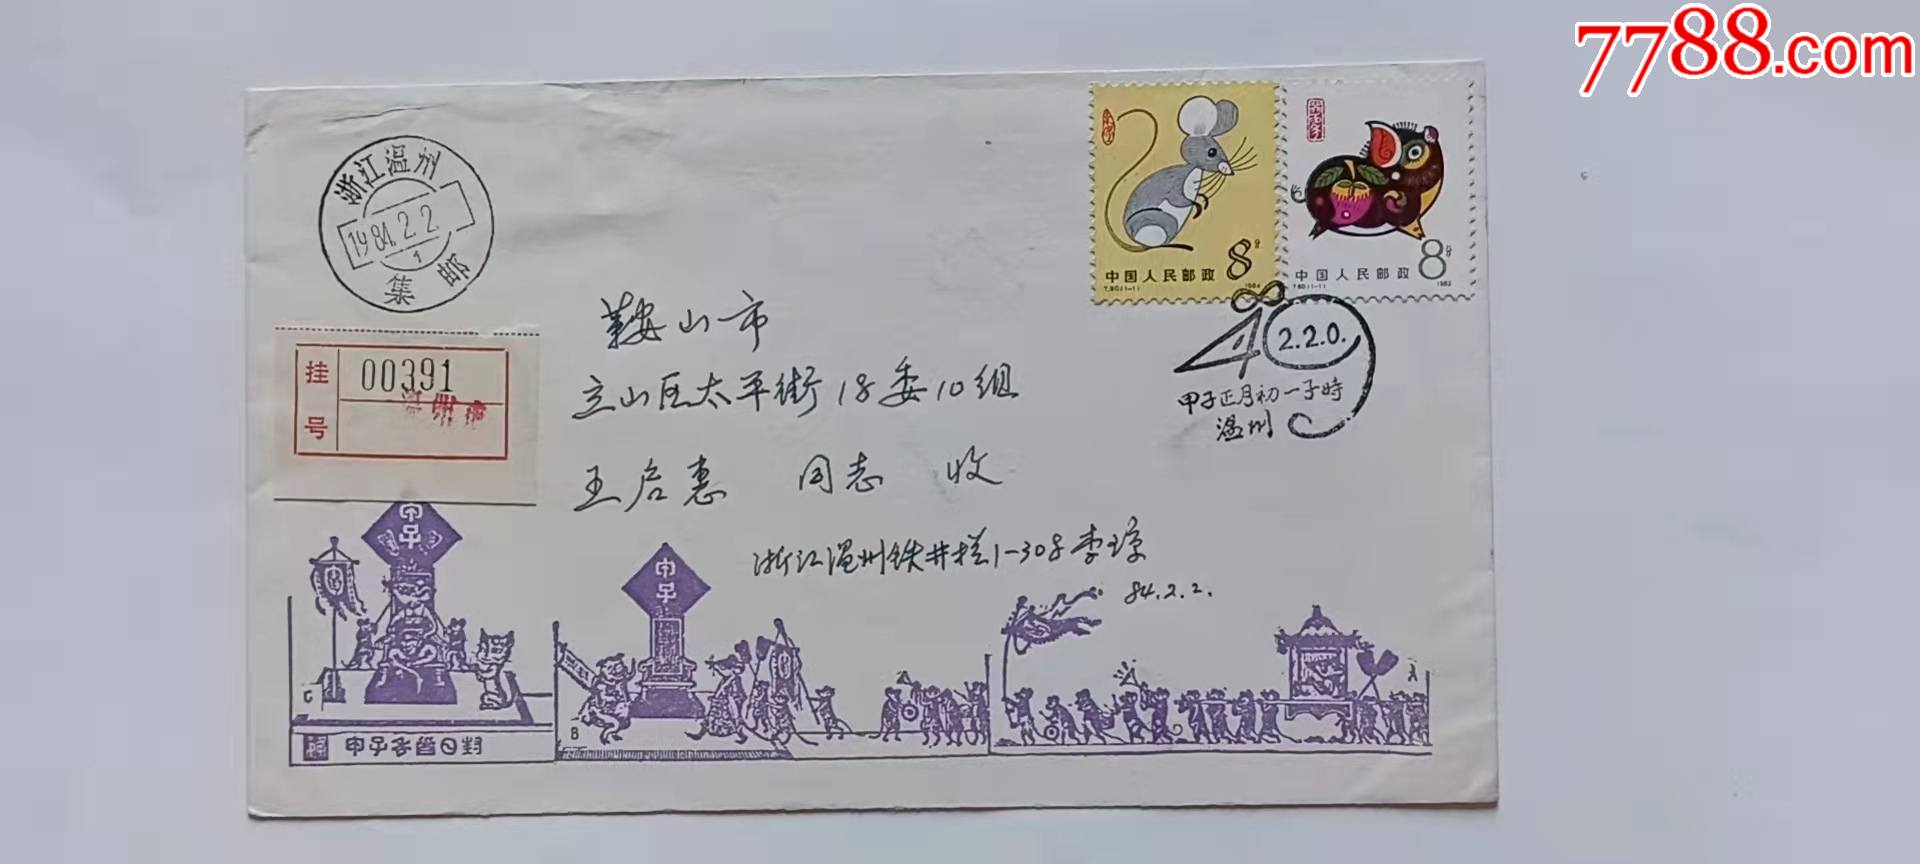 7788.com
浙江温州
1984.2.2.
1
集邮
中国人民邮政
8分
T.90.(1-1)
1984
中国人民邮政
8分
T.80.(1-1)
1983
2.2.0.
甲子正月初一子時
温州
挂号
00391
鞍山市
立山区太平街18委10组
王启惠 同志 收
浙江温州铁井栏1-30号李琼
84.2.2.
甲子
甲子
C
B
A